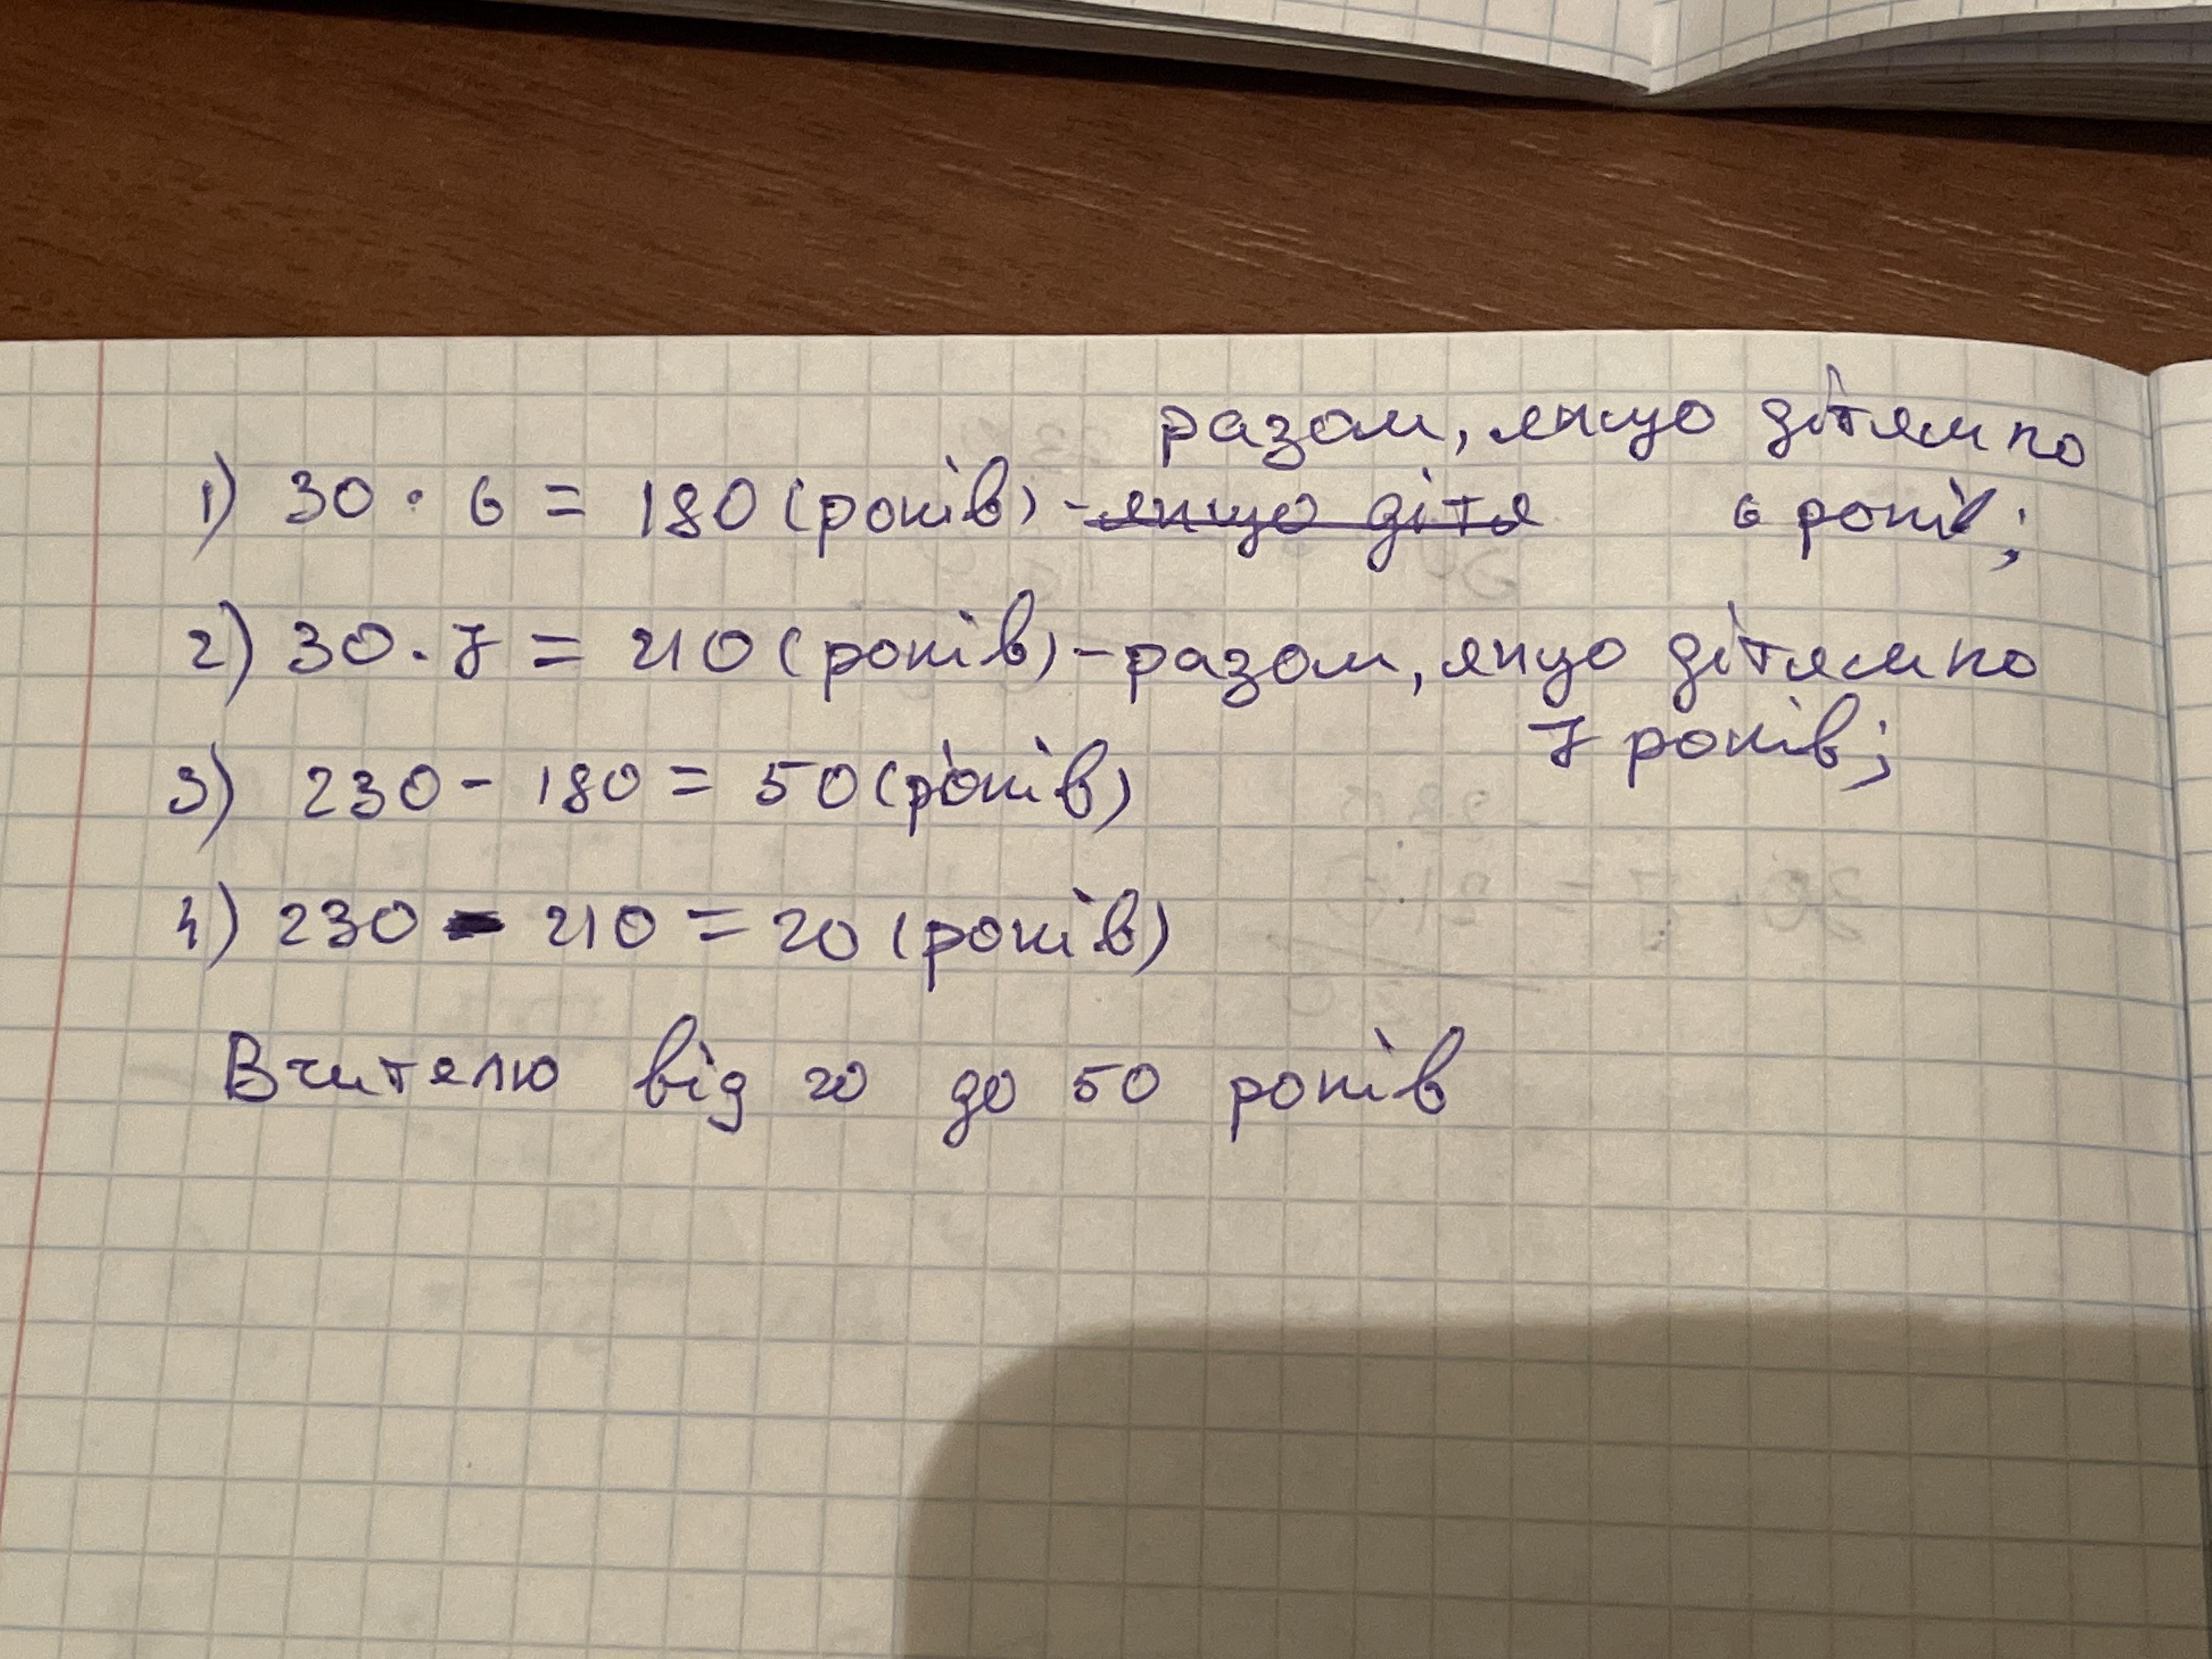 разом, якщо дітям по
1) 30 · 6 = 180 (років) - якщо дітя 6 років;
2) 30 · 7 = 210 (років) - разом, якщо дітям по
7 років;
3) 230 - 180 = 50 (років)
4) 230 - 210 = 20 (років)
Вчителю від 20 до 50 років